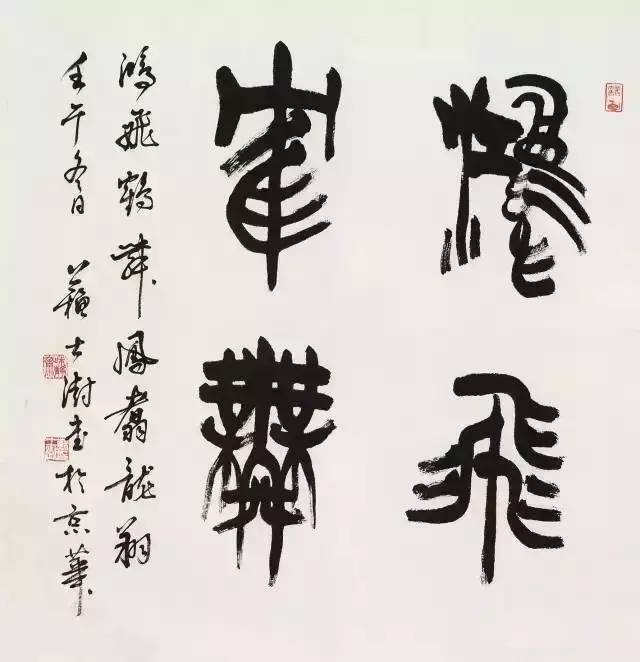 鴻飛
隺舞
鴻飛鶴舞鳳翥龍翔
壬午冬日 蘇士澍書於京華